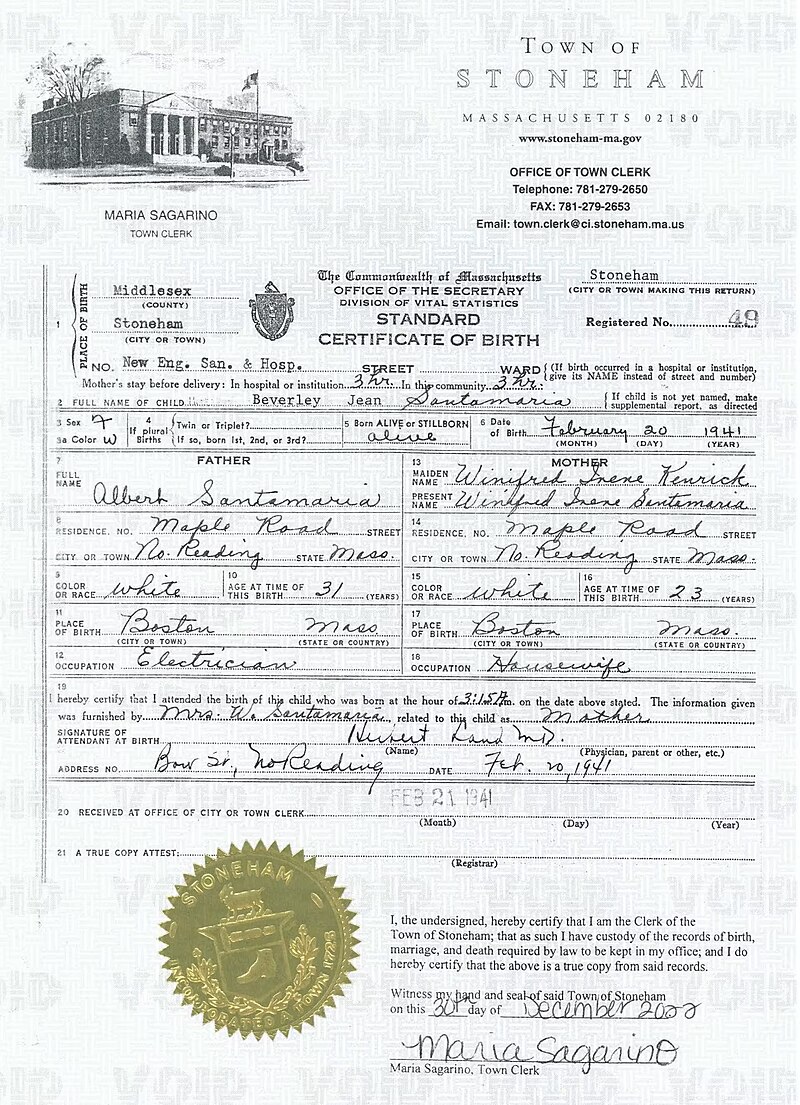 TOWN OF
STONEHAM
MASSACHUSETTS 02180
www.stoneham-ma.gov
OFFICE OF TOWN CLERK
Telephone: 781-279-2650
FAX: 781-279-2653
Email: town.clerk@ci.stoneham.ma.us
MARIA SAGARINO
TOWN CLERK
The Commonwealth of Massachusetts
OFFICE OF THE SECRETARY
DIVISION OF VITAL STATISTICS
STANDARD
CERTIFICATE OF BIRTH
Stoneham
(CITY OR TOWN MAKING THIS RETURN)
Registered No. 49
1 PLACE OF BIRTH
Middlesex
(COUNTY)
Stoneham
(CITY OR TOWN)
NO. New Eng. San. & Hosp. STREET WARD (If birth occurred in a hospital or institution, give its NAME instead of street and number)
Mother's stay before delivery: In hospital or institution 3 hr. In this community 3 hr.
2 FULL NAME OF CHILD Beverley Jean Santamaria (If child is not yet named, make supplemental report, as directed
3 Sex F
3a Color W
4 If plural Births
Twin or Triplet?
If so, born 1st, 2nd, or 3rd?
5 Born ALIVE or STILLBORN
alive
6 Date of Birth February 20 1941
(MONTH) (DAY) (YEAR)
FATHER
7 FULL NAME Albert Santamaria
8 RESIDENCE, NO. Maple Road STREET
CITY OR TOWN No. Reading STATE Mass.
9 COLOR OR RACE white
10 AGE AT TIME OF THIS BIRTH 31 (YEARS)
11 PLACE OF BIRTH Boston Mass
(CITY OR TOWN) (STATE OR COUNTRY)
12 OCCUPATION Electrician
MOTHER
13 MAIDEN NAME Winifred Irene Kenrick
PRESENT NAME Winifred Irene Santamaria
14 RESIDENCE, NO. Maple Road STREET
CITY OR TOWN No. Reading STATE Mass.
15 COLOR OR RACE white
16 AGE AT TIME OF THIS BIRTH 23 (YEARS)
17 PLACE OF BIRTH Boston Mass.
(CITY OR TOWN) (STATE OR COUNTRY)
18 OCCUPATION Housewife
19
I hereby certify that I attended the birth of this child who was born at the hour of 3:15A m. on the date above stated. The information given
was furnished by Mrs. W. Santamaria, related to this child as Mother
SIGNATURE OF ATTENDANT AT BIRTH Hubert M.D.
(Name) (Physician, parent or other, etc.)
ADDRESS NO. Bow St., No Reading DATE Feb. 20, 1941
FEB 21 1941
20 RECEIVED AT OFFICE OF CITY OR TOWN CLERK
(Month) (Day) (Year)
21 A TRUE COPY ATTEST:
(Registrar)
STONEHAM
INCORPORATED A TOWN 1725
I, the undersigned, hereby certify that I am the Clerk of the
Town of Stoneham; that as such I have custody of the records of birth,
marriage, and death required by law to be kept in my office; and I do
hereby certify that the above is a true copy from said records.
Witness my hand and seal of said Town of Stoneham
on this 30th day of December 2022
Maria Sagarino
Maria Sagarino, Town Clerk
VOID